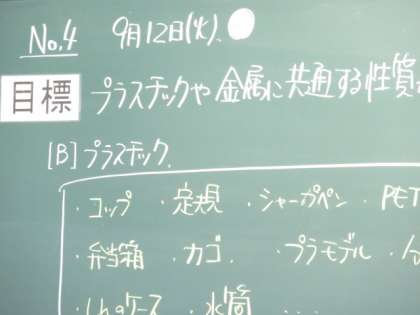 No.4 9月12日(火)、
目標 プラスチックや金属に共通する性質
[B]プラスチック
・コップ ・定規 ・シャーペン ・PET
・弁当箱 ・カゴ ・プラモデル
ケース ・水筒 ....